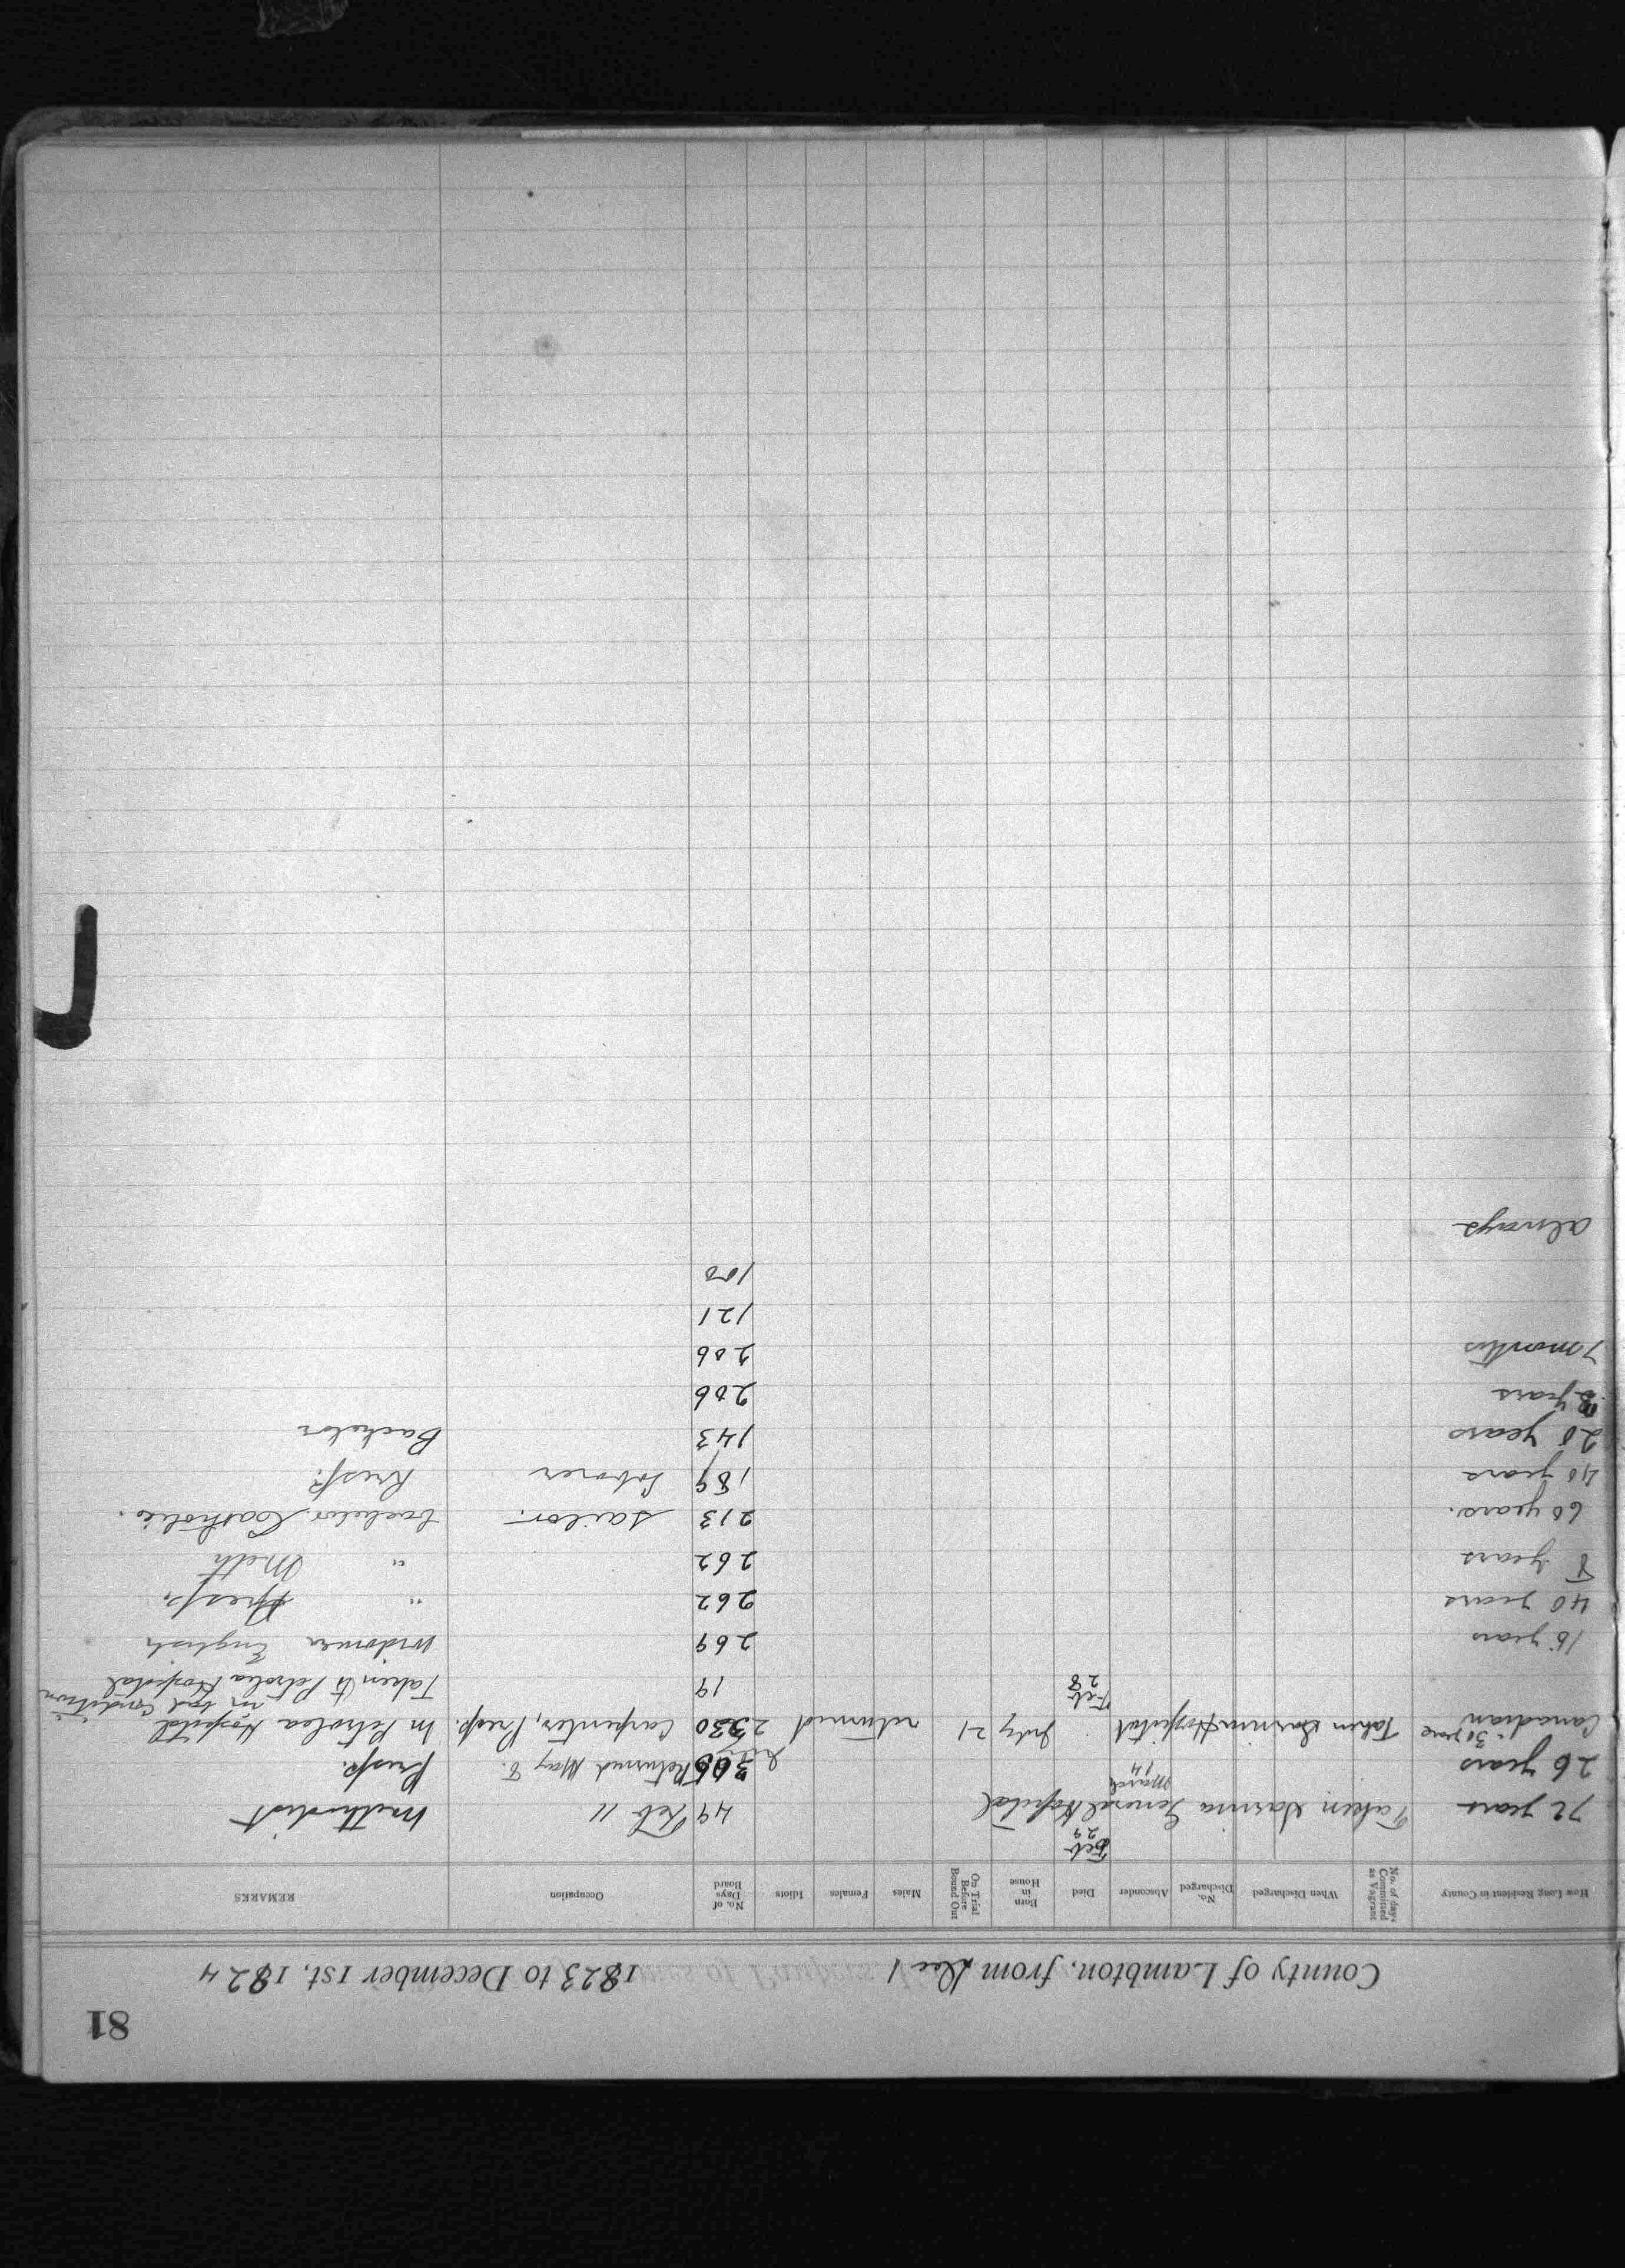 81
County of Lambton, from Dec 1 1823 to December 1st, 1824
How Long Resident in County No. of days Committed as Vagrant When Discharged No. Discharged Absconder Died Born in House On Trial Before Bound Out Males Females Idiots No. of Days Board Occupation REMARKS
Feb 29
72 years Taken Sarnia General Hospital 49 Feb 11 Methodist
March 14
26 years 306 Returned May 8. Presp.
Canadian 30 years Taken Sarnia Hospital July 21 returned 330 Carpenter, Presp. In Petrolea Hospital
in bad condition
Feb 28 19 Taken to Petrolea Hospital
16 years 269 widower English
40 years 262 " Presp.
8 years 262 " Meth
60 years. 213 sailor. bachelor. Catholic.
40 years 189 laborer Presp.
20 years 143 Bachelor
years 206
7 months 206
121
100
always